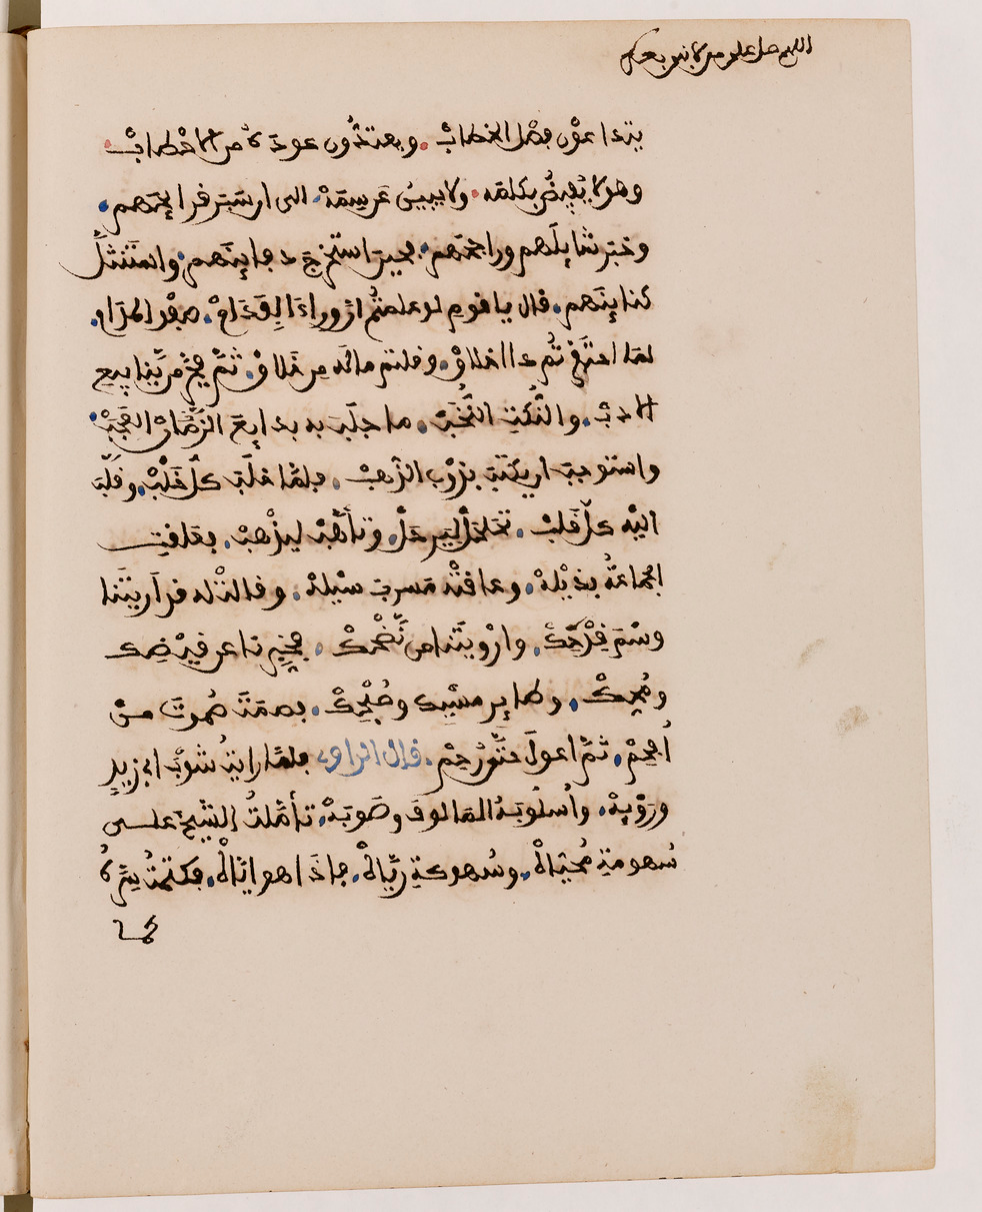 اللهم صل على
يتداعون فصل الخطاب. ويعتدون عوده من الاحطاب.
وهو لا يفيض بكلمة. ولا يبين عن سمة. الى ان سبر قرائحهم.
وخبر شائلهم وراجحهم. فحين استخرج دفائنهم. وانتثل
كنائنهم. قال يا قوم لو علمتم ان وراء الفدام. صفو المدام.
لما احتقرتم ذا اخلاق. وقلتم ماله من خلاق. ثم فجر من ينابيع
الادب. والنكت النخب. ما جلب به بدايع العجب.
واستوجب ان يكتب بذوب الذهب. فلما خلب كل خلب. وقلب
اليه كل قلب. تحلحل ليرحل. وتأهب ليذهب. فعلقت
الجماعة بذيله. وعاقت مسرب سيله. وقالت له قد اريتنا
وسم قدحك. وارويتنا من نضحك. فخبرنا عن قيضك
ومحك. فصمت صموت من
أفحم. ثم اعول حتى رحم. قال الراوي فلما رايت شوب ابي زيد
وروبه. وأسلوبه المالوف وصوبه. تأملت الشيخ على
سهومة محياه. وسهوكة رياه. فاذا هو اياه. فكتمت سره
كما